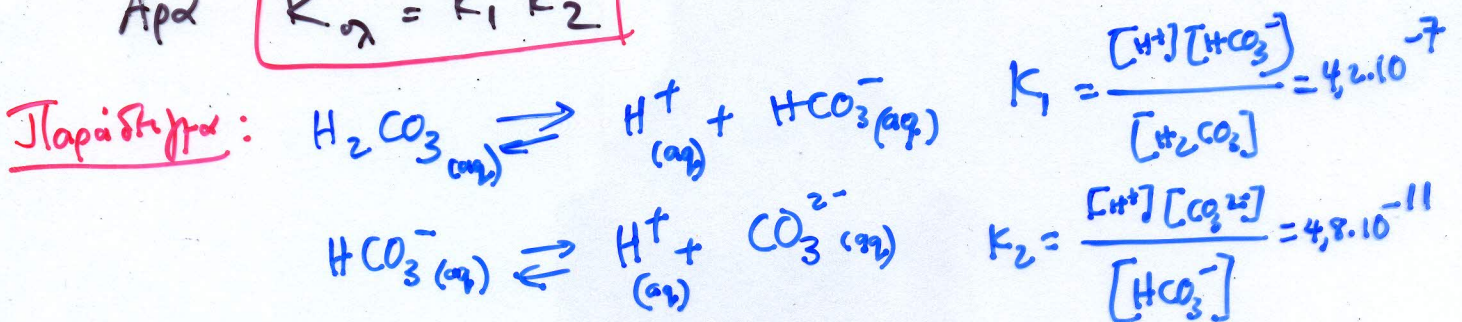 Άρα Kολ = K₁ K₂
Παράδειγμα: H₂CO₃(aq) ⇌ H⁺(aq) + HCO₃⁻(aq) K₁ = [H⁺][HCO₃⁻] / [H₂CO₃] = 4,2·10⁻⁷
HCO₃⁻(aq) ⇌ H⁺(aq) + CO₃²⁻(aq) K₂ = [H⁺][CO₃²⁻] / [HCO₃⁻] = 4,8·10⁻¹¹